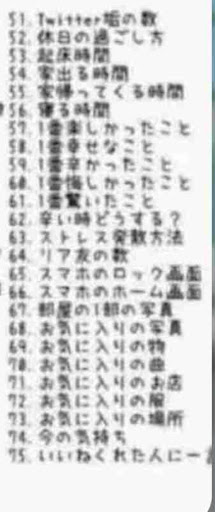 51. Twitter垢の数
52. 休日の過ごし方
53. 起床時間
54. 家出る時間
55. 家帰ってくる時間
56. 寝る時間
57. 1番楽しかったこと
58. 1番幸せなこと
59. 1番辛かったこと
60. 1番悔しかったこと
61. 1番驚いたこと
62. 辛い時どうする？
63. ストレス発散方法
64. リア友の数
65. スマホのロック画面
66. スマホのホーム画面
67. 部屋の1部の写真
68. お気に入りの写真
69. お気に入りの物
70. お気に入りの曲
71. お気に入りのお店
72. お気に入りの服
73. お気に入りの場所
74. 今の気持ち
75. いいねくれた人に一言